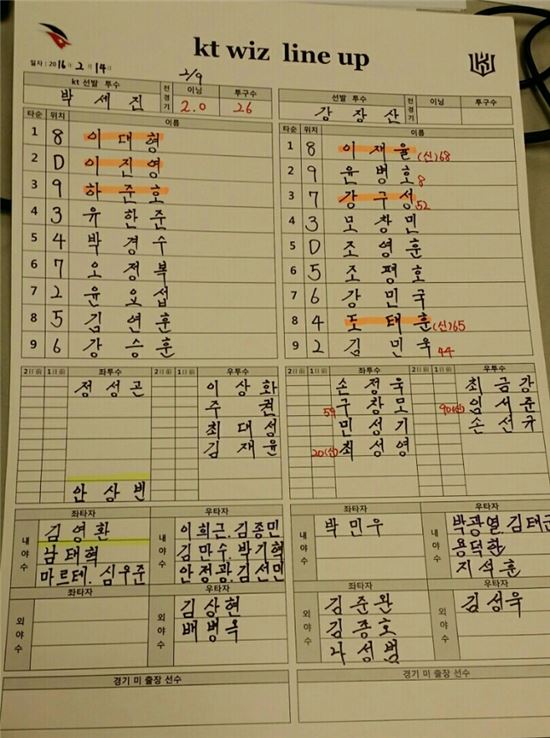 kt wiz line up
일자 : 2016년 2월 14일
2/9
kt 선발 투수 전경기 이닝 투구수
박세진 2.0 26
타순 위치 이름
1 8 이대형
2 D 이진영
3 9 하준호
4 3 유한준
5 4 박경수
6 7 오정복
7 2 윤요섭
8 5 김연훈
9 6 강승훈
선발 투수 전경기 이닝 투구수
강장산
타순 위치 이름
1 8 이재율 (신)68
2 9 윤병호 8
3 7 강구성 52
4 3 모창민
5 D 조영훈
6 5 조평호
7 6 강민국
8 4 도태훈 (신)65
9 2 김민욱 44
2日前 1日前 좌투수 2日前 1日前 우투수
정성곤 이상화
주권
최대성
김재윤
안상빈
2日前 1日前 좌투수 2日前 1日前 우투수
손정욱 최금강
59 구창모 90(신) 임서준
민성기 손선규
20(신) 최성영
좌타자 우타자
내야수 김영환 내야수 이희근.김종민
남태혁 김만수.박기혁
마르테.심우준 안정광.김선민
좌타자 우타자
외야수 외야수 김상현
배병옥
좌타자 우타자
내야수 박민우 내야수 박광열.김태군
용덕한
지석훈
좌타자 우타자
외야수 김준완 외야수 김성욱
김종호
나성범
경기 미 출장 선수
경기 미 출장 선수